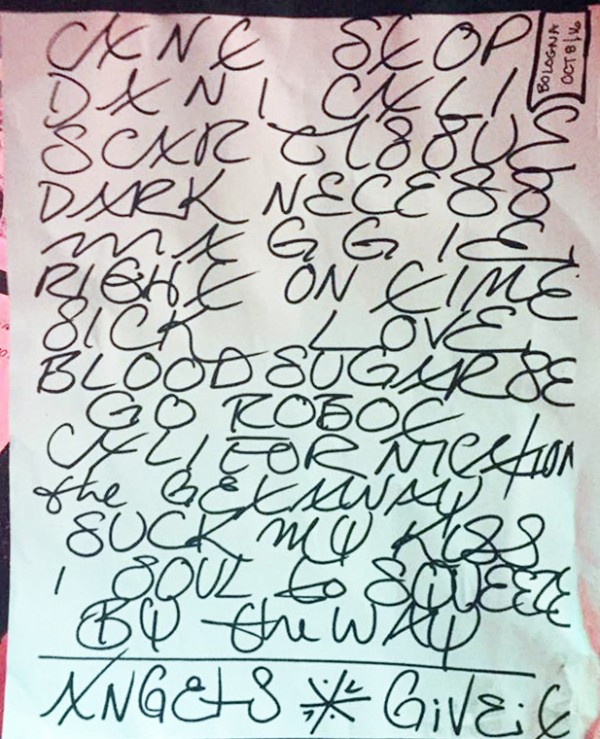 CAN'T STOP
BOLOGNA
OCT 8/16
DANI CALI
SCAR TISSUE
DARK NECESS
MAGGIE
RIGHT ON TIME
SICK LOVE
BLOOD SUGAR SE
GO ROBOT
CALIFORNICATION
the GETAWAY
SUCK MY KISS
I SOUL to SQUEEZE
BY the WAY
ANGELS * GiVE iT